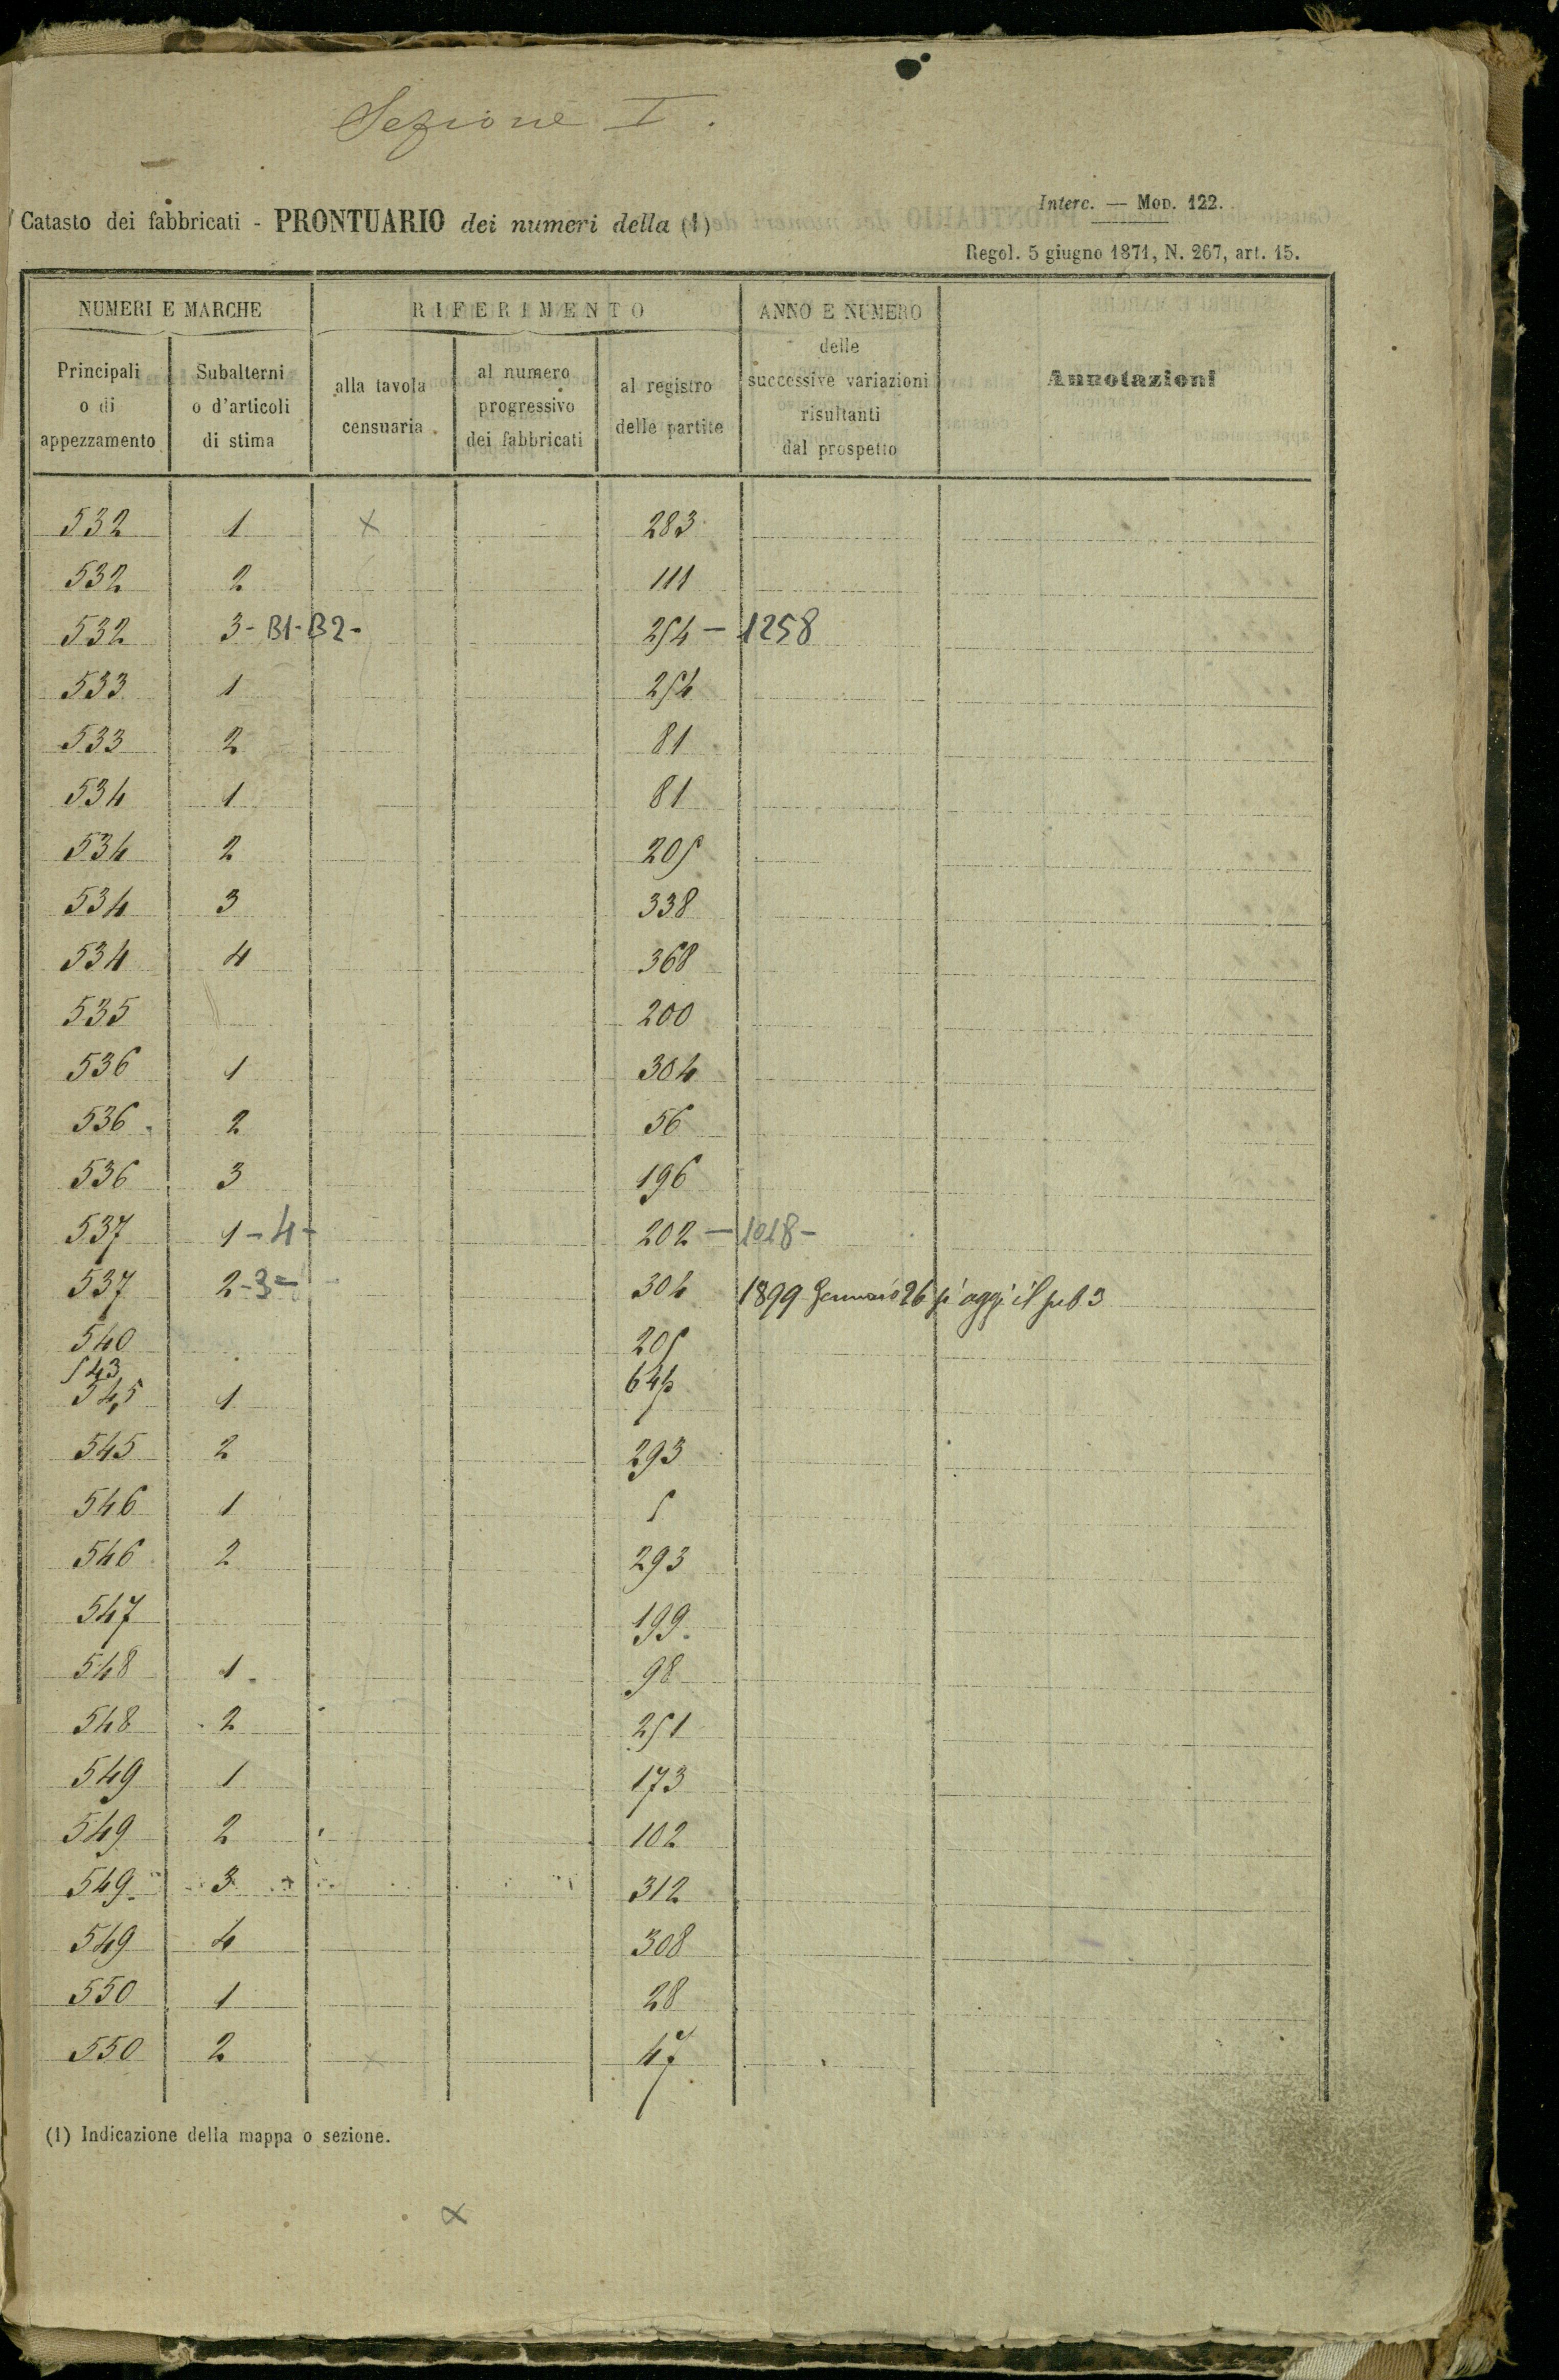 Sezione I.
Interc. — Mod. 122.
Catasto dei fabbricati - PRONTUARIO dei numeri della (1)
Regol. 5 giugno 1871, N. 267, art. 15.
NUMERI E MARCHE
RIFERIMENTO
ANNO E NUMERO delle successive variazioni risultanti dal prospetto
Annotazioni
Principali o di appezzamento
Subalterni o d'articoli di stima
alla tavola censuaria
al numero progressivo dei fabbricati
al registro delle partite
532 1 x 283
532 2 111
532 3 - B1 - B2 - 254 — 1258
533 1 254
533 2 81
534 1 81
534 2 205
534 3 338
534 4 368
535 200
536 1 304
536 2 56
536 3 196
537 1 - 4 - 202 — 1018 -
537 2 - 3 - 304 1899 Gennaio 26 si agg. il sub 3
540 205
543 644
545 1 5
545 2 293
546 1 5
546 2 293
547 199
548 1 98
548 2 251
549 1 173
549 2 102
549 3 312
549 4 308
550 1 28
550 2 47
(1) Indicazione della mappa o sezione.
x